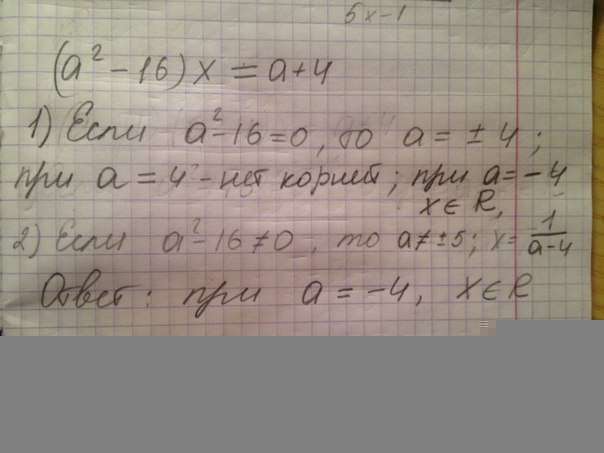 5x-1
(a² - 16) x = a + 4
1) Если a² - 16 = 0, то a = ± 4;
при a = 4 - нет корней; при a = - 4
x ∈ R,
2) Если a² - 16 ≠ 0, то a ≠ ± 5; x = 1/(a-4)
Ответ: при a = -4, x ∈ R